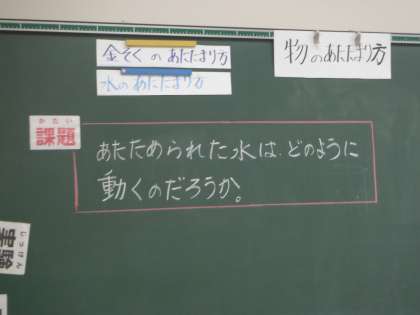 金ぞくのあたたまり方
水のあたたまり方
物のあたたまり方
かだい
課題
あたためられた水は、どのように
動くのだろうか。
じっけん
実験